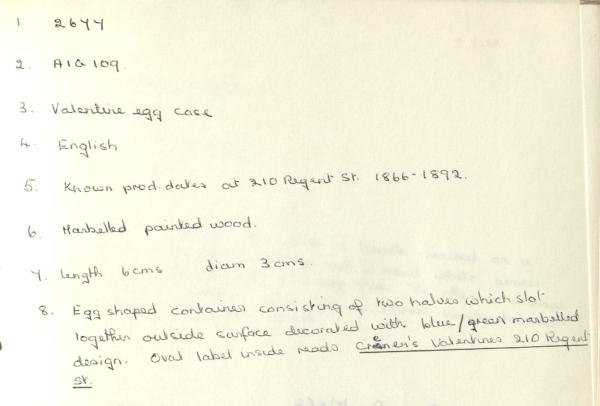 1 2677
2. A1Q 109.
3. Valentine egg case
4. English
5. Known prod. dates at 210 Regent St. 1866-1892.
6. Marbelled painted wood.
7. length 6cms diam 3cms.
8. Egg shaped container consisting of two halves which slot
together outside surface decorated with blue/green marbelled
design. Oval label inside reads Cremer's Valentines 210 Regent
St.